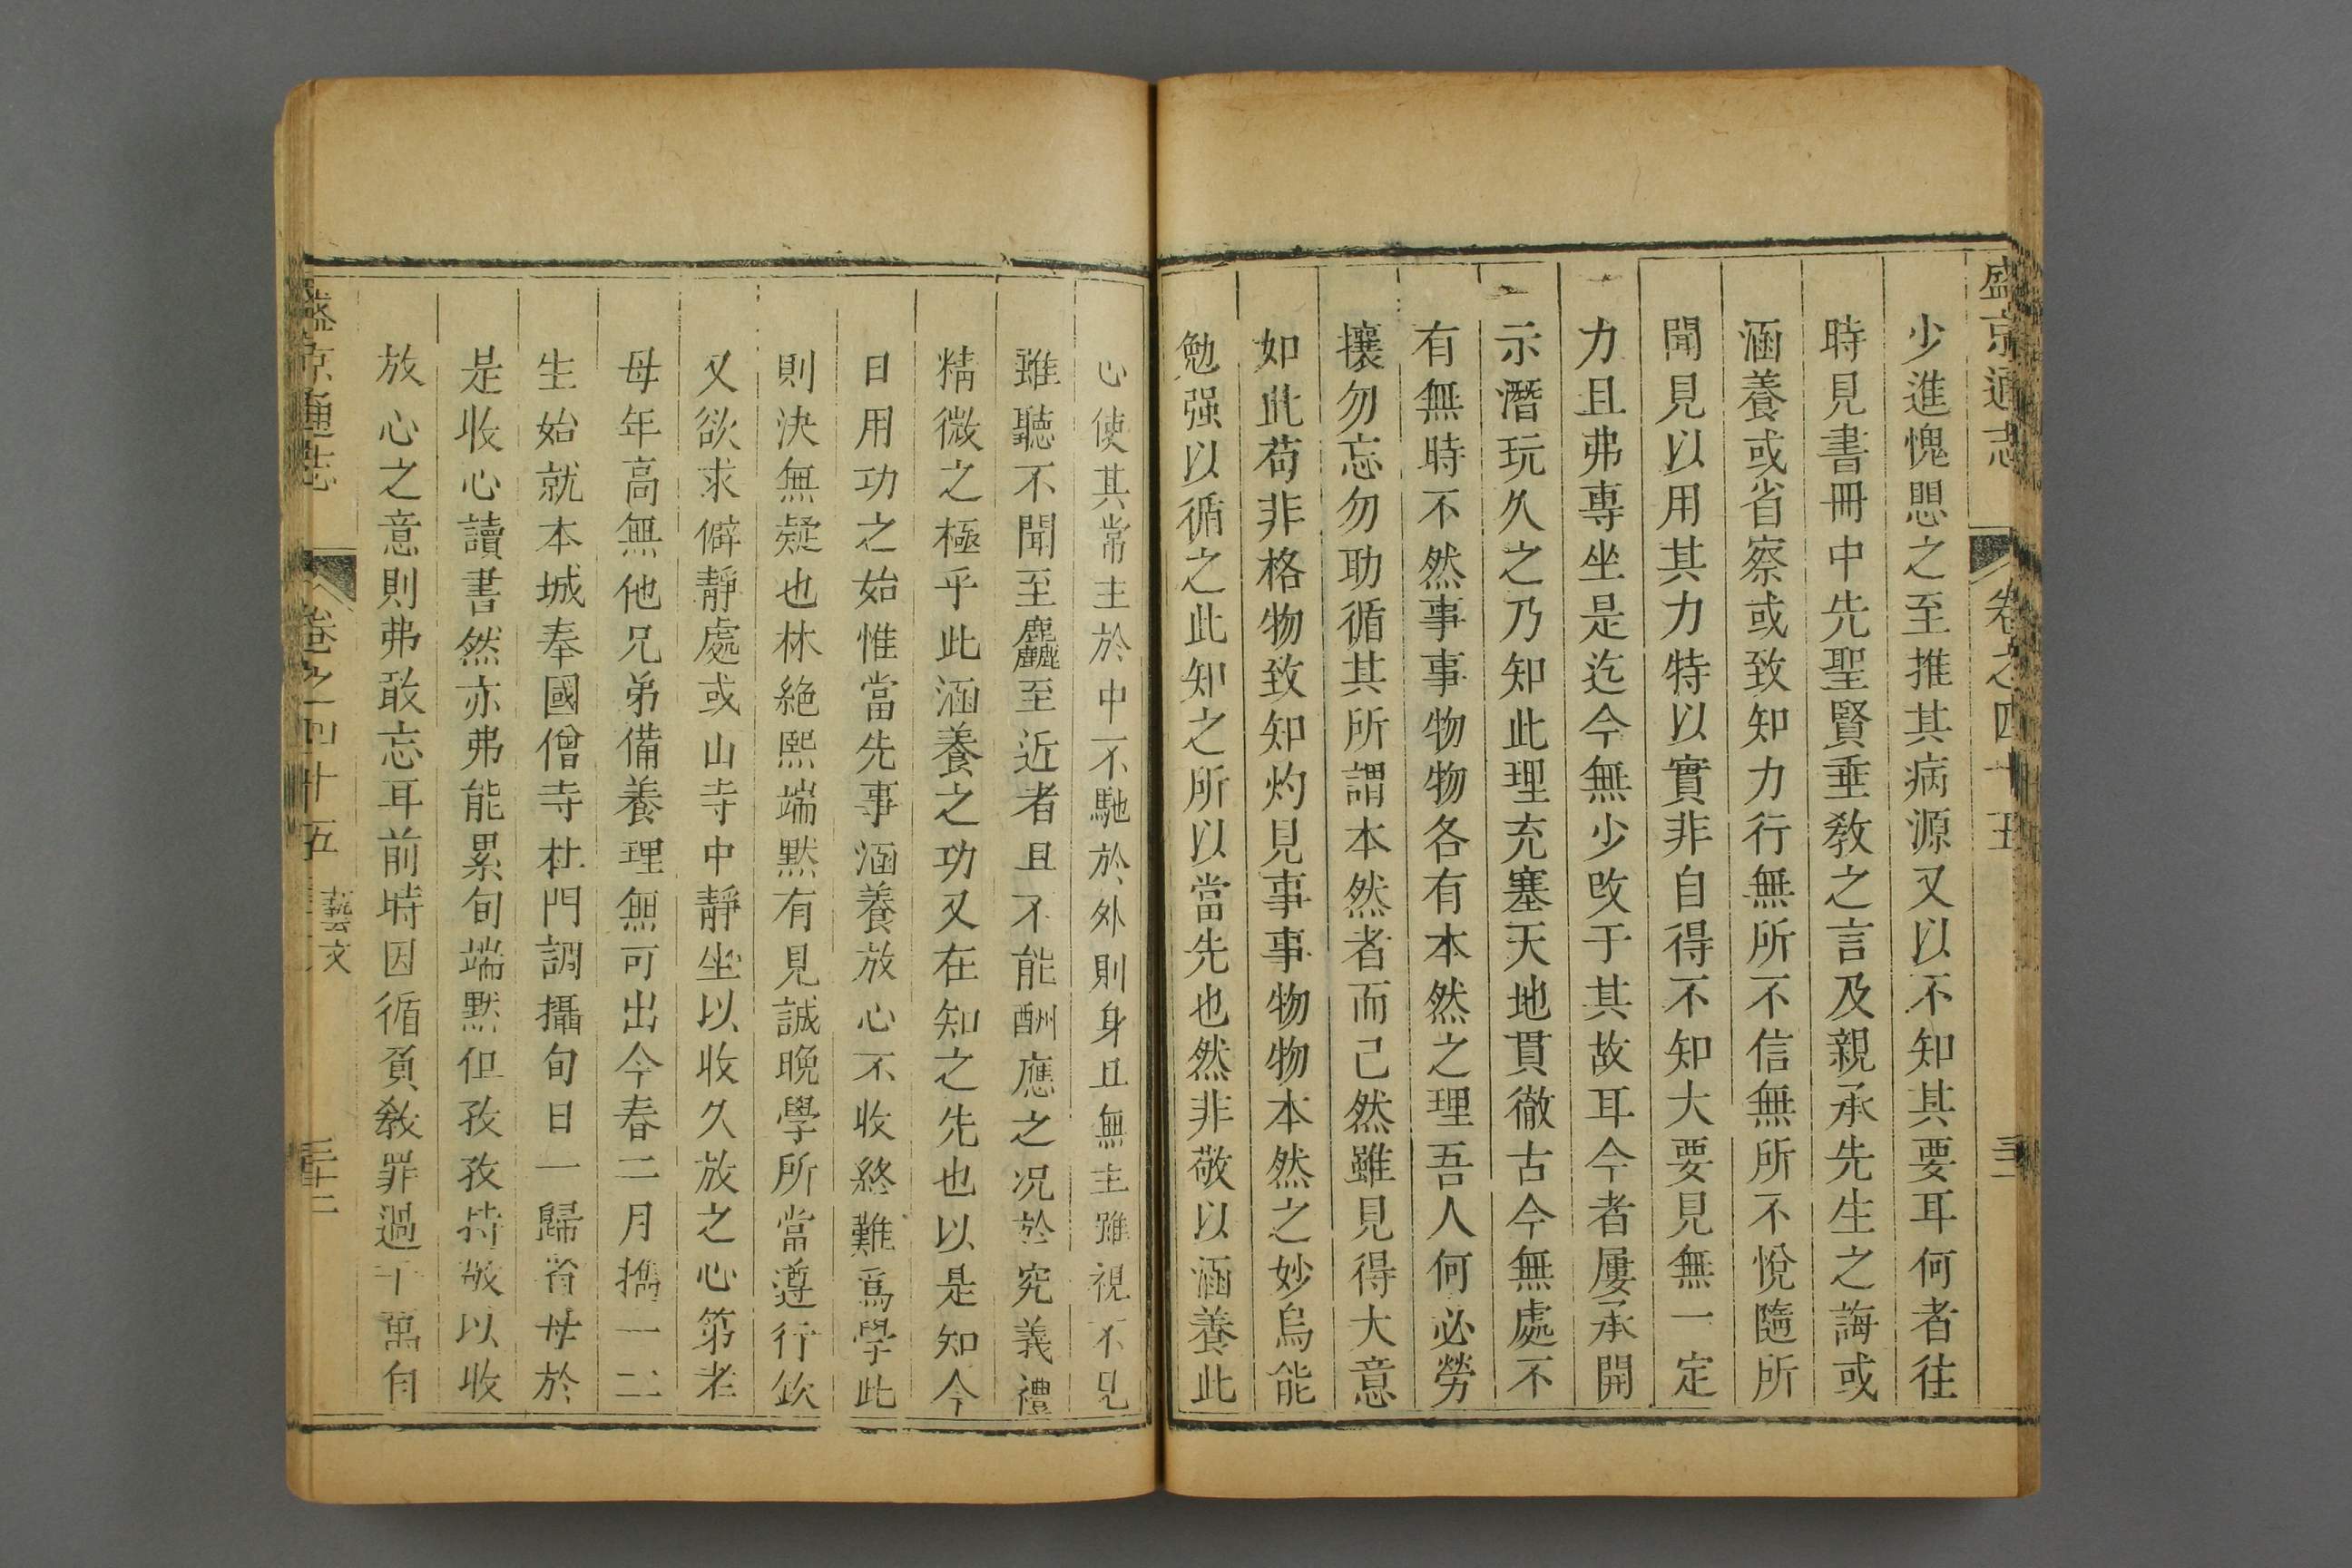 盛京通志 卷之四十五
少進愧恩之至推其病源又以不知其要耳何者往
時見書冊中先聖賢垂教之言及親承先生之誨或
涵養或省察或致知力行無所不信無所不悅隨所
聞見以用其力特以實非自得不知大要見無一定
力且弗專坐是迄今無少攺于其故耳今者屢承開
示潛玩久之乃知此理充塞天地貫徹古今無處不
有無時不然事事物物各有本然之理吾人何必勞
攘勿忘勿助循其所謂本然者而己然雖見得大意
如此苟非格物致知灼見事事物物本然之妙烏能
勉强以循之此知之所以當先也然非敬以涵養此
心使其常主於中不馳於外則身且無主雖視不見
雖聽不聞至麤至近者且不能酬應之况於究義禮
精微之極乎此涵養之功又在知之先也以是知今
日用功之始惟當先事涵養放心不收終難爲學此
則決無疑也林絶熙端默有見誠晚學所當遵行欽
又欲求僻靜處或山寺中靜坐以收久放之心第老
母年高無他兄弟備養理無可出今春二月擕一二
生始就本城奉國僧寺杜門調攝旬日一歸省母於
是收心讀書然亦弗能累旬端默但孜孜持敬以收
放心之意則弗敢忘耳前時因循負教罪過千萬自
盛京通志 卷之四十五 藝文 三十二